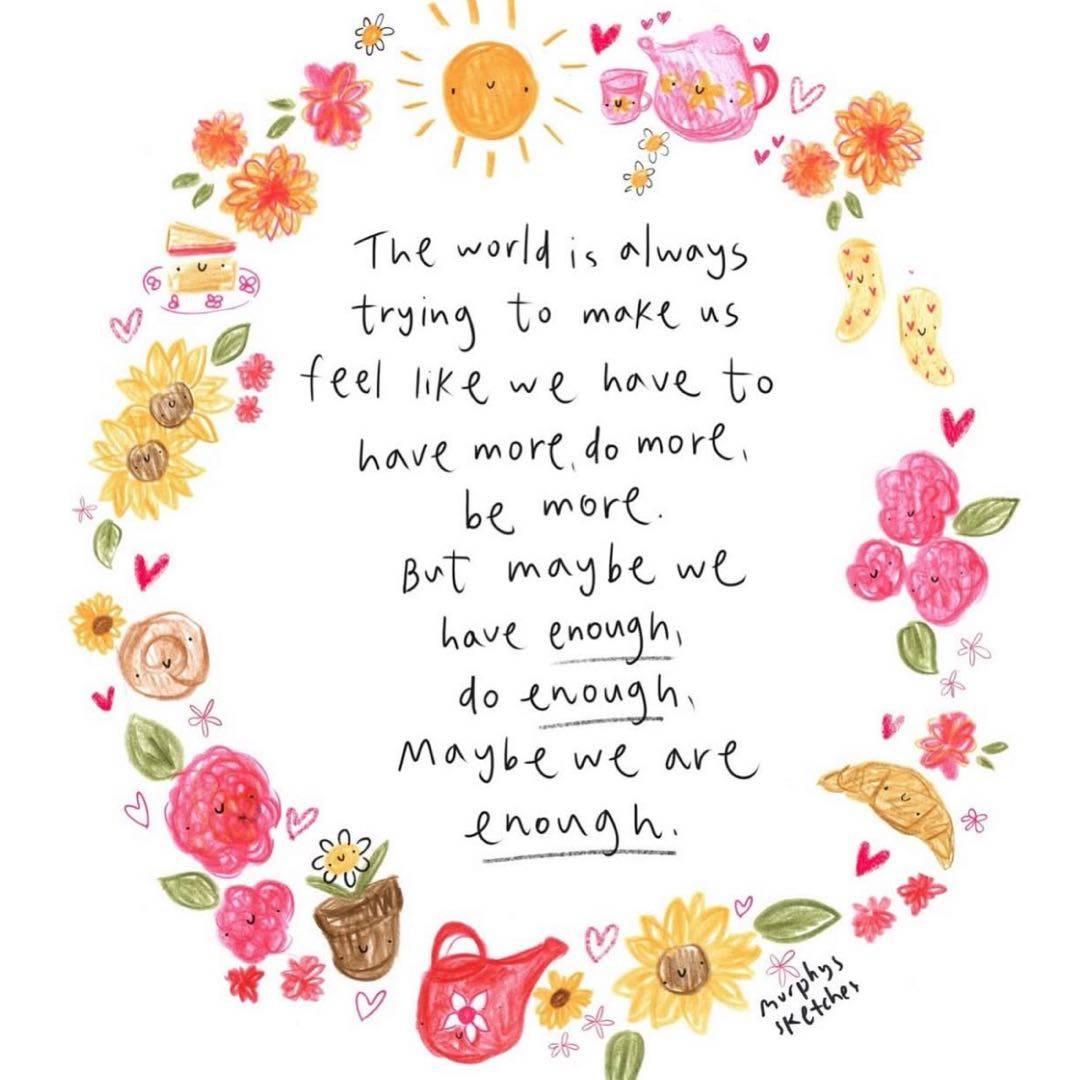 The world is always
trying to make us
feel like we have to
have more, do more,
be more.
But maybe we
have enough,
do enough,
Maybe we are
enough.
murphys
sketches